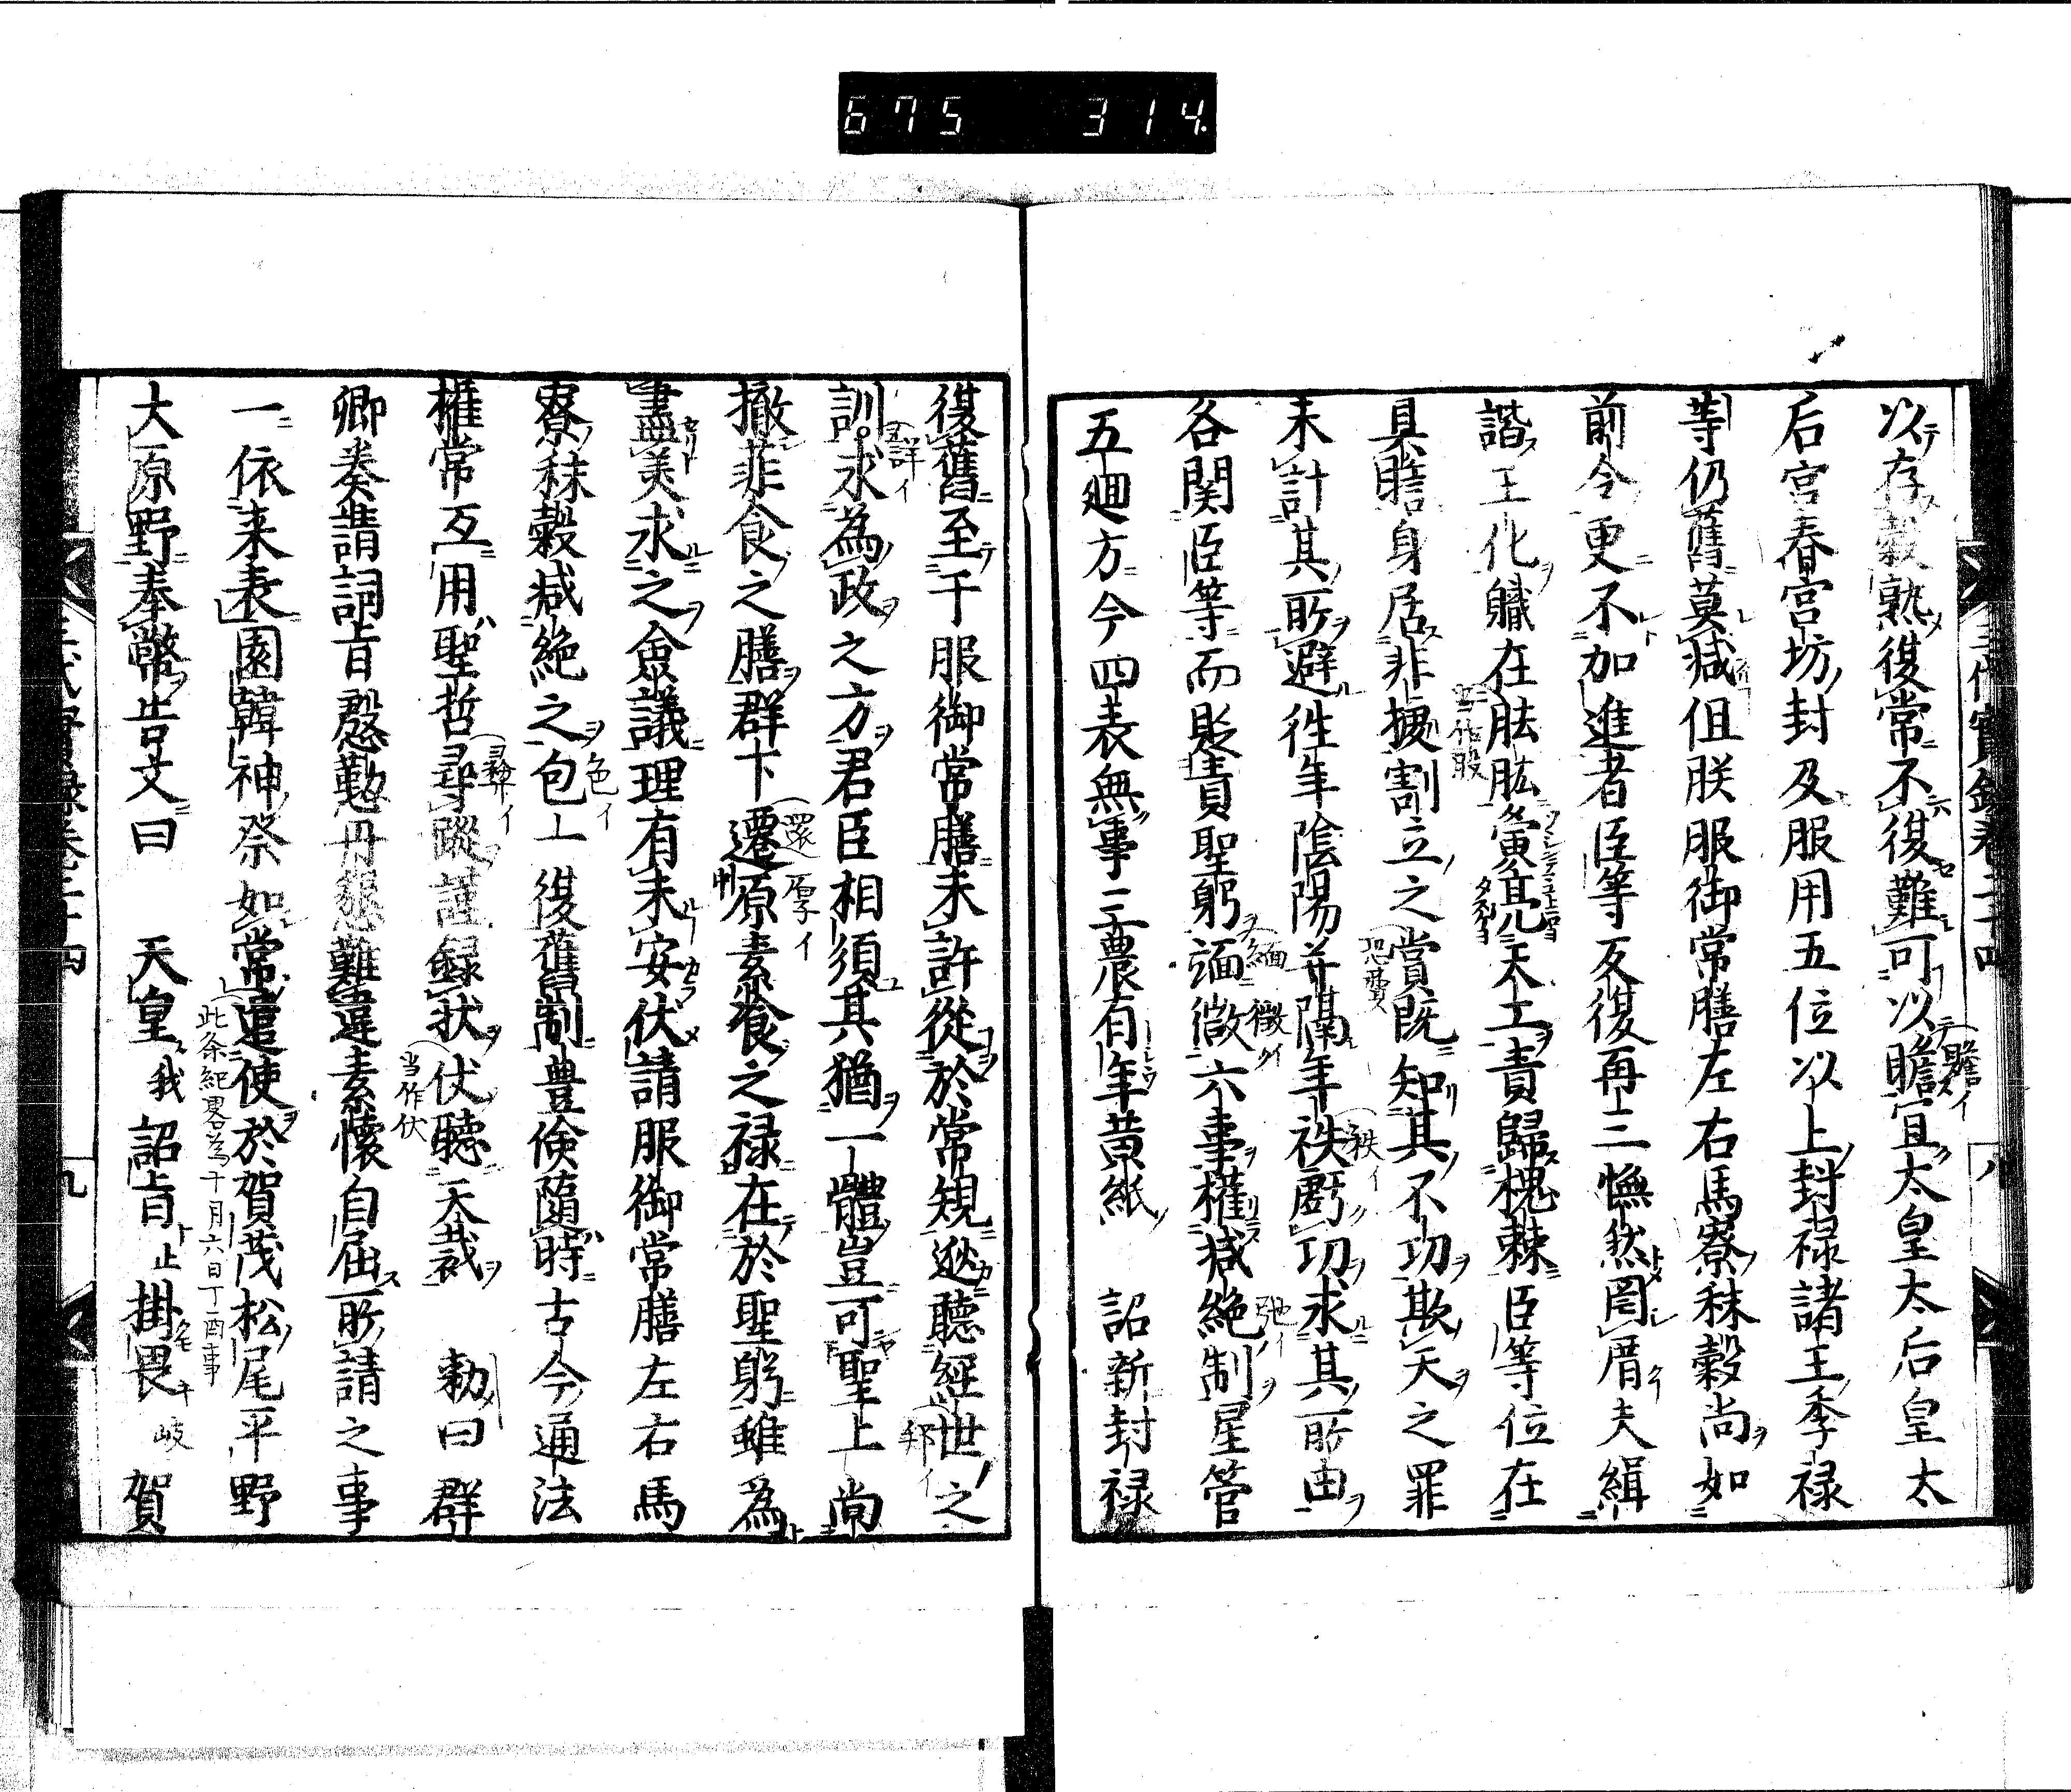 675 314
以存穀熟復常不復難可以贍宜太皇太后皇太
后宮春宮坊封及服用五位以上封禄諸王季禄
等仍舊莫减但朕服御常膳左右馬寮秣穀尚如
前今更不加進者臣等反復再三憮然罔厝夫緝
諧王化軄在肱肱亮天工責歸槐棘臣等位在
具瞻身居非據割立之賞既知其不功欺天之罪
未計其所避徃年陰陽并隔年祑虧功求其所由
各関臣等而貶責聖躬緬微六事權减絶制星管
五廻方今四表無事三農有年黄紙 詔新封禄
復舊至于服御常膳未許從於常規逖聴經世之
訓求為政之方君臣相須其猶一體豈可聖上尚
撤菲食之膳群下遷原素飡之禄在於聖躬雖為
盡美求之僉議理有未安伏請服御常膳左右馬
寮秣穀减絶之包一復舊制豊倹隨時古今通法
權常互用聖哲尋蹤謹録状伏聴天裁 勅曰群
卿奏請詞旨慇懃丹懇難違素懐自屈所請之事
一依来表園韓神祭如常遣使於賀茂松尾平野
大原野奉幣告文曰 天皇我詔旨止掛畏岐賀
此条紀畧為十月六日丁酉事
三代實録巻二十四
八
九